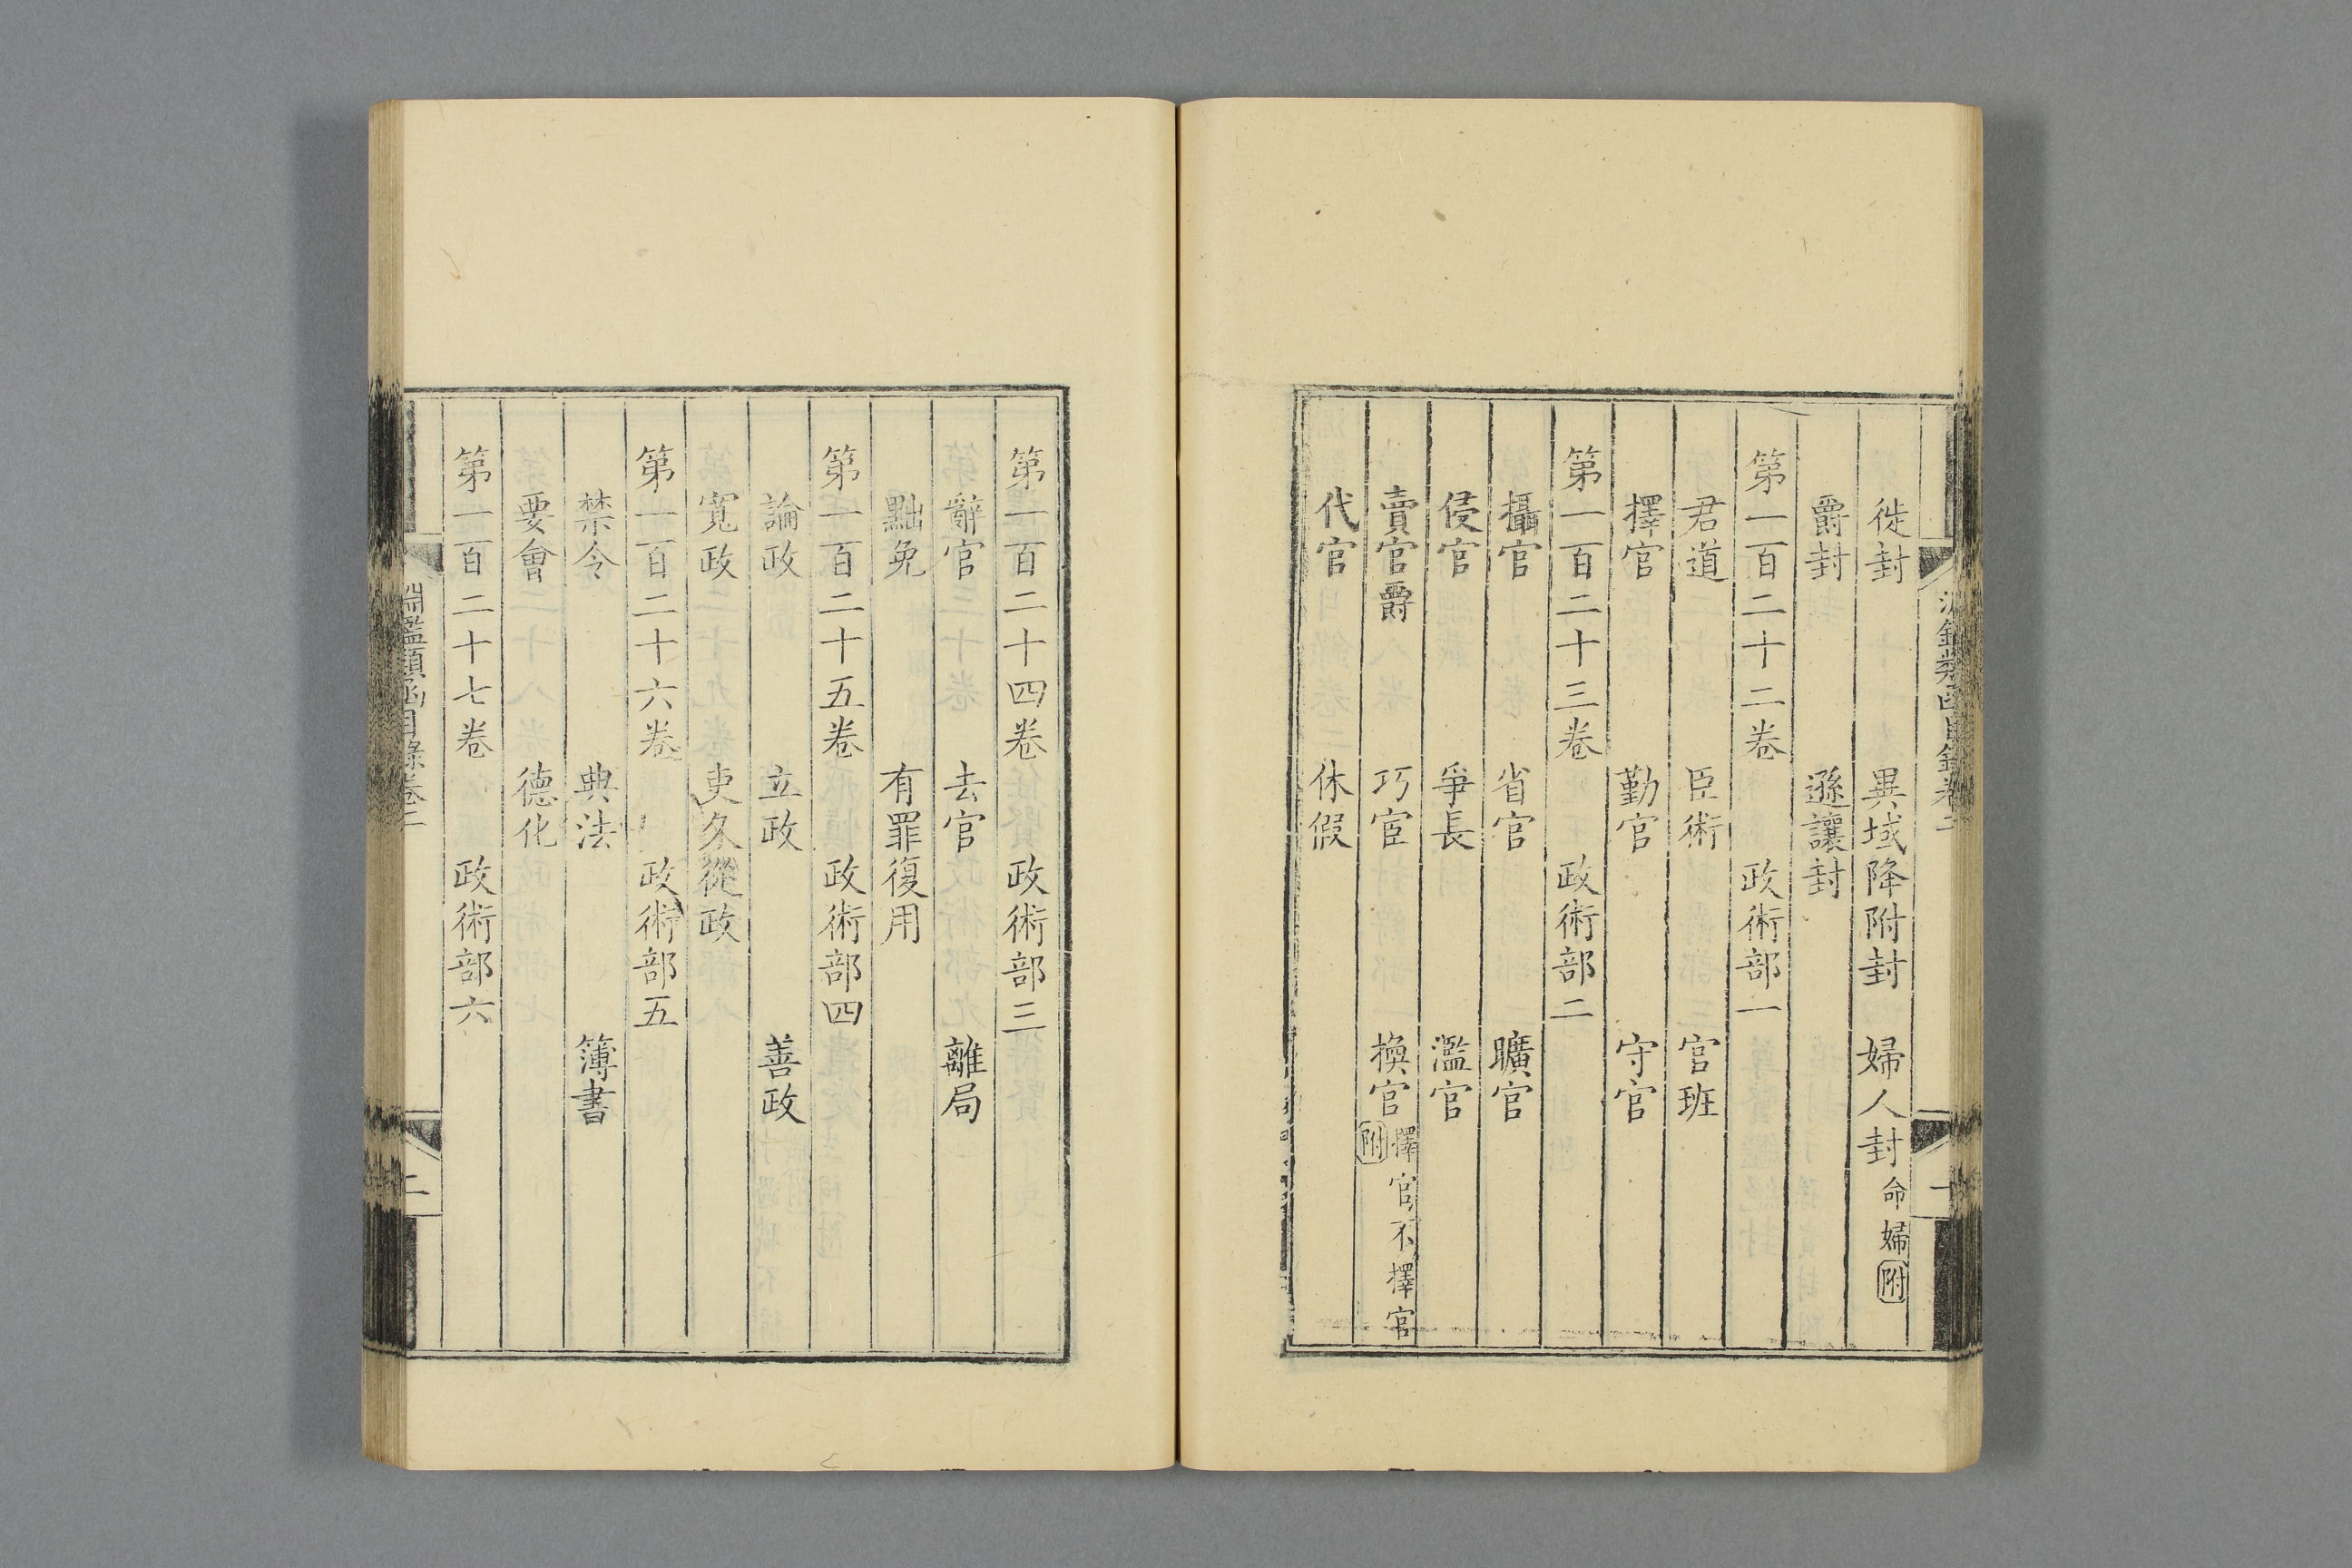 徙封　異域降附封　婦人封命婦附
爵封　遜讓封
第一百二十二卷　政術部一
君道　臣術　官班
擇官　勤官　守官
第一百二十三卷　政術部二
攝官　省官　曠官
侵官　爭長　濫官
賣官爵　巧宦　換官擇官不擇官附
代官　休假
第一百二十四卷　政術部三
辭官　去官　離局
黜免　有罪復用
第一百二十五卷　政術部四
論政　立政　善政
寬政　吏久從政
第一百二十六卷　政術部五
禁令　典法　簿書
要會　德化
第一百二十七卷　政術部六
淵鑑類函目錄卷二
二